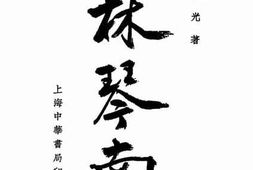 光著
林琴南
上海中華書局印